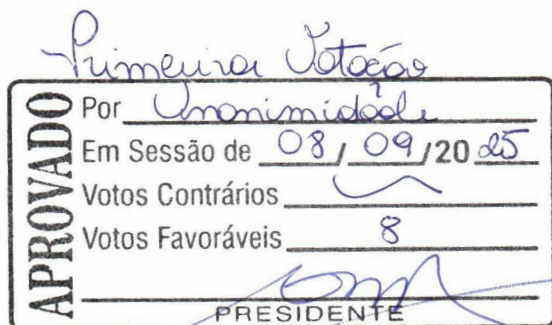 Primeira Votação
APROVADO
Por Unanimidade
Em Sessão de 08/09/2025
Votos Contrários
Votos Favoráveis 8
PRESIDENTE